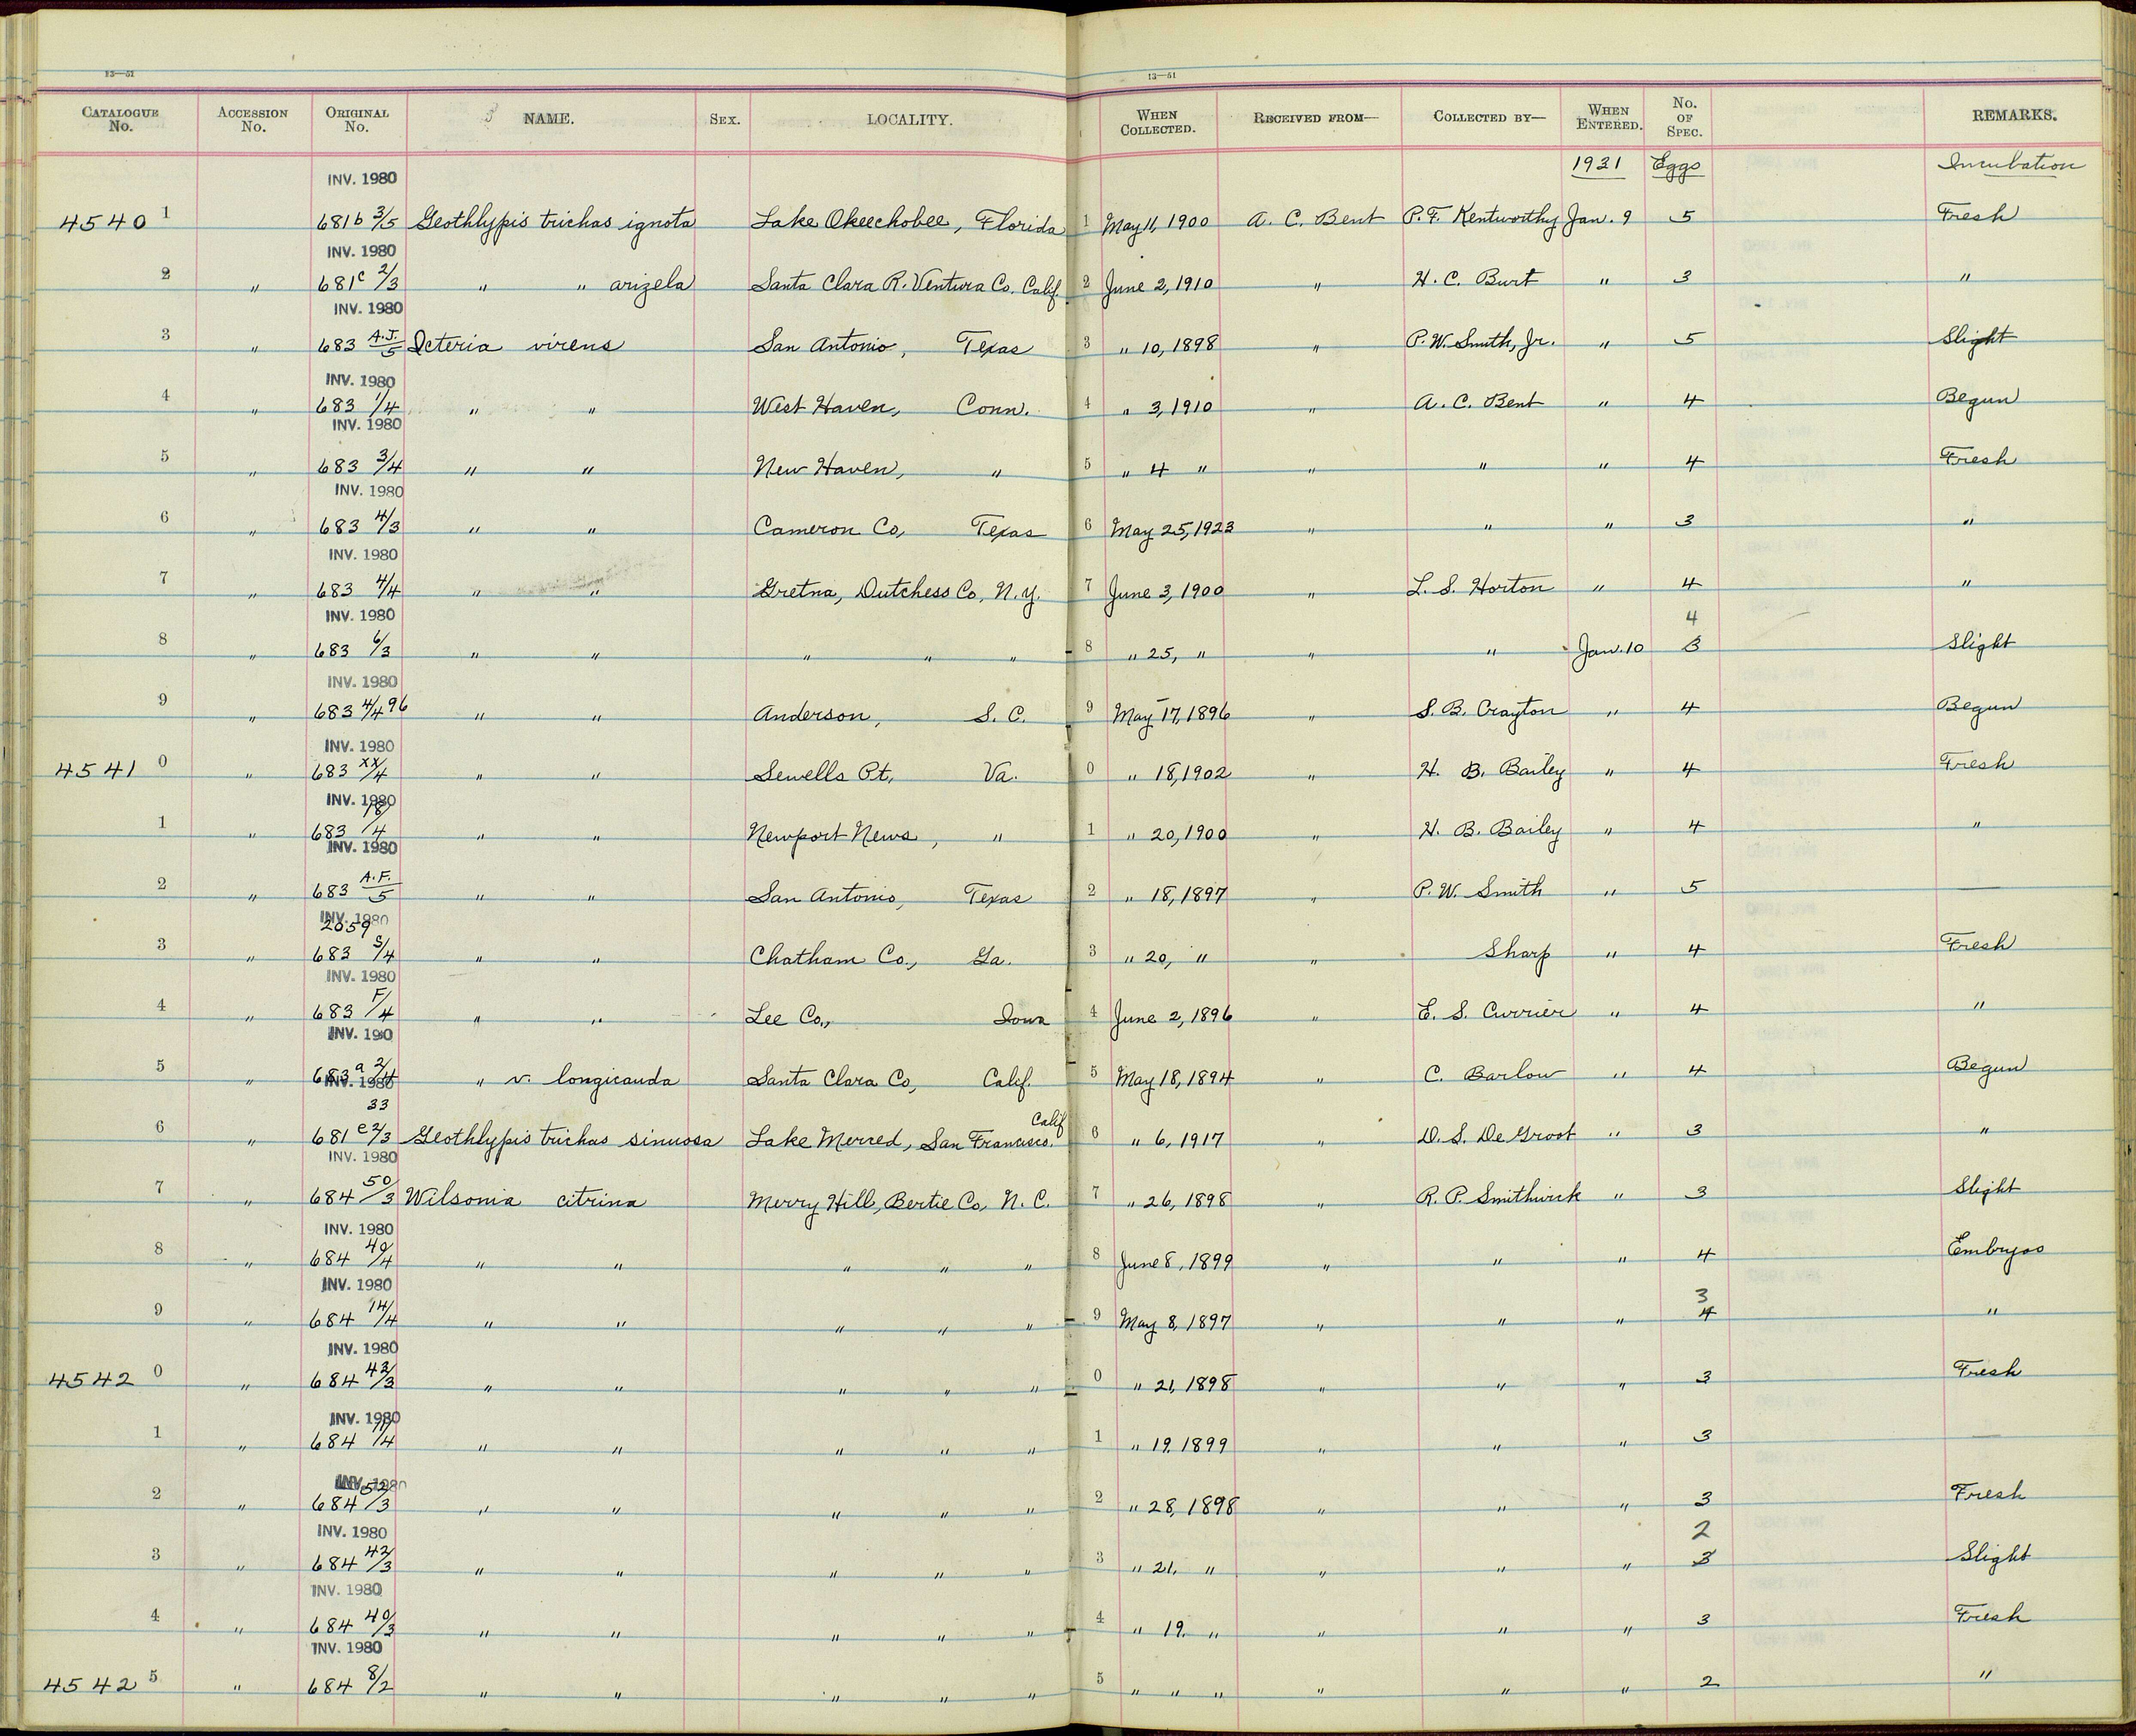 13—51 13—51
CATALOGUE No. ACCESSION No. ORIGINAL No. NAME. SEX. LOCALITY. WHEN COLLECTED. RECEIVED FROM— COLLECTED BY— WHEN ENTERED. No. OF SPEC. REMARKS.
1931 Eggs Incubation
INV. 1980
4540 1 681b 3/5 Geothlypis trichas ignota Lake Okeechobee, Florida 1 May 11, 1900 A. C. Bent P. F. Kentworthy Jan. 9 5 Fresh
INV. 1980
2 " 681c 2/3 " " arizela Santa Clara R. Ventura Co. Calif. 2 June 2, 1910 " H. C. Burt " 3 "
INV. 1980
3 " 683 A.J./5 Icteria virens San Antonio, Texas 3 " 10, 1898 " P. W. Smith, Jr. " 5 Slight
INV. 1980
4 " 683 1/4 " " West Haven, Conn. 4 " 3, 1910 " A. C. Bent " 4 Begun
INV. 1980
5 " 683 3/4 " " New Haven, " 5 " 4 " " " " 4 Fresh
INV. 1980
6 " 683 4/3 " " Cameron Co, Texas 6 May 25, 1923 " " " 3 "
INV. 1980
7 " 683 4/4 " " Gretna, Dutchess Co, N.Y. 7 June 3, 1900 " L. S. Horton " 4 "
INV. 1980 4
8 " 683 6/3 " " " " " 8 " 25, " " " Jan. 10 3 Slight
INV. 1980
9 " 683 4/4 96 " " Anderson, S. C. 9 May 17, 1896 " S. B. Crayton " 4 Begun
INV. 1980
4541 0 " 683 XX/4 " " Sewells Pt, Va. 0 " 18, 1902 " H. B. Bailey " 4 Fresh
INV. 1980
1 " 683 18/4 " " Newport News, " 1 " 20, 1900 " H. B. Bailey " 4 "
INV. 1980
2 " 683 A.F./5 " " San Antonio, Texas 2 " 18, 1897 " P. W. Smith " 5 —
INV. 1980
2659
3 " 683 S/4 " " Chatham Co., Ga. 3 " 20, " " Sharp " 4 Fresh
INV. 1980
4 " 683 F/4 " " Lee Co., Iowa 4 June 2, 1896 " E. S. Currier " 4 "
INV. 1980
5 " 683a 2/4 " v. longicauda Santa Clara Co, Calif. 5 May 18, 1894 " C. Barlow " 4 Begun
INV. 1980
33 Calif
6 " 681 e2/3 Geothlypis trichas sinuosa Lake Merced, San Francisco. 6 " 6, 1917 " D. S. De Groot " 3 "
INV. 1980
7 " 684 50/3 Wilsonia citrina Merry Hill, Bertie Co, N. C. 7 " 26, 1898 " R. P. Smithwick " 3 Slight
INV. 1980
8 " 684 40/4 " " " " " 8 June 8, 1899 " " " 4 Embryos
INV. 1980 3
9 " 684 14/4 " " " " " 9 May 8, 1897 " " " 4 "
INV. 1980
4542 0 " 684 43/3 " " " " " 0 " 21, 1898 " " " 3 Fresh
INV. 1980
1 " 684 11/4 " " " " " 1 " 19. 1899 " " " 3
INV. 1980
2 " 684 52/3 " " " " " 2 " 28, 1898 " " " 3 Fresh
INV. 1980 2
3 " 684 42/3 " " " " " 3 " 21, " " " " 3 Slight
INV. 1980
4 " 684 40/3 " " " " " 4 " 19. " " " " 3 Fresh
INV. 1980
4542 5 " 684 8/2 " " " " " 5 " " " " " " 2 "